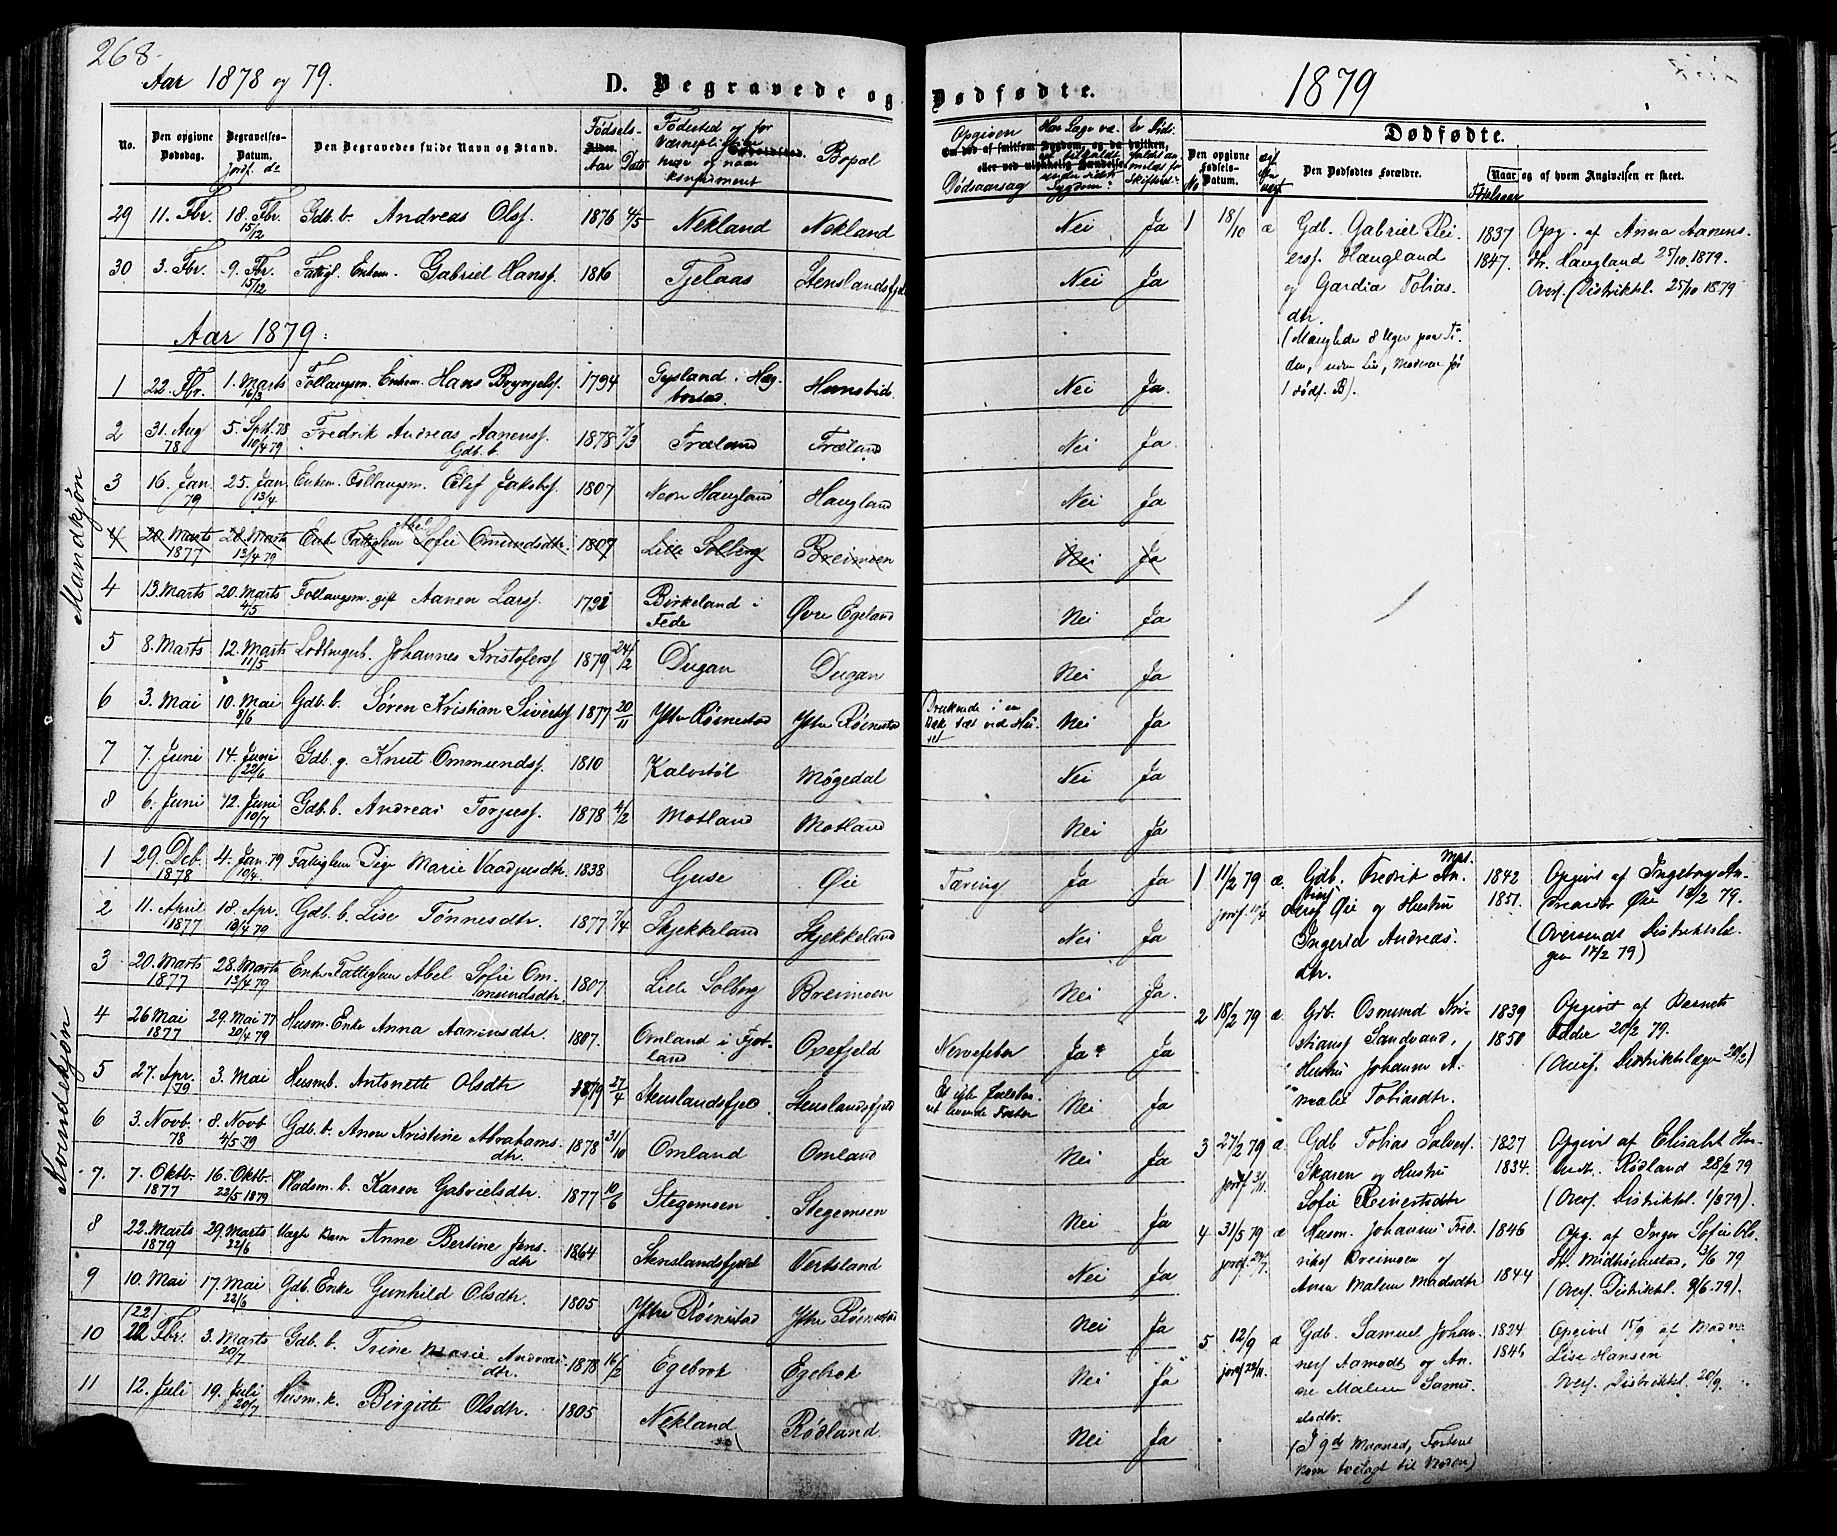 268
Aar 1878 og 79.
D. Begravede og Dødfødte.
1879
No.
Den opgivne Dødsdag.
Begravelses-Datum. jordf. d.
Den Begravedes fulde Navn og Stand.
Fødsels-
Aar Dato
Fødested og for
Bopæl
Opgiven
Dødsaarsag
Dødfødte.
Den opgivne Fødsels-Datum.
No
Den Dødfødtes Forældre.
Naar og af hvem Angivelsen er skeet.
29 11. Fbr. 18. Fbr. 15/12 Gdb. b. Andreas Olsf. 1876 4/5 Nekland Nekland Nei Ja
30 3. Fbr. 9. Fbr. 15/12 Fattigl. Enkem. Gabriel Hansf. 1816 Tjelaas Stenslandsfjeld Nei Ja
Aar 1879:
Mandkjøn
1 22. Fbr. 1. Marts 16/3 Follaugsm. Enkem. Hans Brynjelsf. 1794 Gysland i Hægbostad Hunsbid Nei Ja
2 31. Aug 78 5. Spt. 78 10/4 79 Fredrik Andreas Aanensf. Gdb. b. 1878 7/3 Træland Træland Nei Ja
3 16. Jan 79 25. Jan 13/4 Enkem. Follaugsm. Elef Jakobsf. 1807 Nedre Haugland Haugland Nei Ja
4 20. Marts 1877 28. Marts 13/4 79 Enke Fattiglem Abel Sofie Omundsdtr. 1807 Lille Solberg Breimoen Nei Ja
4 13. Marts 20. Marts 4/5 Follaugsm. gift Aanen Larsf. 1792 Birkeland i Fede Øvre Egeland Nei Ja
5 8. Marts 12. Marts 11/5 Johannes Kristofersf 1879 24/2 Dugan Dugan Nei Ja
6 3. Mai 10. Mai 8/6 Gdb. b. Søren Kristian Sivertsf 1877 20/11 Ytre Røinestad Ytre Røinestad Druknede i en Bæk tæt ved Huset Nei Ja
7 7. Juni 14. Juni 22/6 Gdb. g. Knut Ommundsf. 1810 Kalvstøl Møgedal Nei Ja
8 6. Juni 12. Juni 10/7 Gdb. b. Andreas Torjusf. 1878 4/2 Motland Motland Nei Ja
Kvindekjøn
1 29. Deb. 1878 4. Jan. 79 10/4 Fattiglem Pige Marie Vaadjusdtr. 1838 Guse Øie Tæring Ja Ja
2 11. April 1877 18. Apr. 13/4 79 Gdb. b. Lise Tønnesdtr. 1877 7/4 Skjekkeland Skjekkeland Nei Ja
3 20. Marts 1877 28. Marts 13/4 79 Enke Fattiglem Abel Sofie Ommundsdtr. 1807 Lille Solberg Breimoen Nei Ja
4 26 Mai 1877 29. Mai 77 20/4 79 Husm. Enke Anna Aanensdtr 1807. Omland i Fjotland Oxefjeld Nervefeber Ja Ja
5 27. Apr. 79 3. Mai Husmb. Antonette Olsdtr 1879 27/4 Stenslandsfjeld Stenslandsfjeld Nei Ja
6 3. Novb. 78 8. Novb 4/5 79 Gdb. b. Anne Kristine Abrahamsdtr. 1878 31/10 Omland Omland Nei Ja
7. 7. Oktb. 1877 16. Oktb. 22/5 1879 Pladsm. b. Karen Gabrielsdtr. 1877 10/6 Stegemoen Stegemoen Nei Ja
8 22. Marts 1879 29. Marts 22/6 Anne Bertine Jensdtr 1864 Stenslandsfjeld Vertsland Nei Ja
9 10. Mai 17. Mai 22/6 Gdb. Enke Gunhild Olsdtr. 1805 Ytre Røinestad Ytre Røinestad Nei Ja
10 (22) 22 Fbr. 3. Marts 20/7 Gdb. b. Trine Marie Andreasdtr. 1878 16/2 Egebrok Egebrok Nei Ja
11 12. Juli 19. Juli 20/7 Husm. k. Birgitte Olsdtr. 1805 Nekland Rødland Nei Ja
1 18/10 æ Gdb. Gabriel Reiersf. Haugland og Gardia Tobiasdtr. 1837 1847. Opg. af Anna Aanensdtr. Haugland 25/10 1879.
Overs. (Distriktsl. 25/10 1879
(Manglede 8 Uger paa Tiden, uden Liv, Moderen før 1 dødf. B).
1 11/2 79 æ. jordf. 10/4 Gdb. Fredrik Øie og Hustru Ingerid Andreasdtr. 1842 1851. Opgivet af Ingeborg Øie 18/2 79.
(Oversendt Distriktslægen 14/2 79)
2 18/2 79 æ Gdb. Osmund Kristiansf Sandvand, Hustru Johanne Amalie Tobiasdtr. 1839 1850 Opgivet af Odder 20/2 79.
(Overs. Distriktslægen 20/2)
3 27/2 79 æ Gdb Tobias Salvesf Skaren og Hustru Sofie Reinertsdtr 1827 1834. Opgivet af Elisabt Rødland 28/2 79
(Overs. Distriktsl. 1/3 79)
4 31/5 79 æ Husm. Johannes Fredriksf Breimoen og Anna Malene Madsdtr 1846 1844 Opg. af Inger Sofie 3/6 79
(Overs. Distriktsl. 9/6 79).
5 12/9 æ Gdb. Samuel Johannesf Aamodt og Anne Malene Samuelsdtr. 1824 1846 Opgivet 15/9 af Madme Lise Hansen
Overs. Distriktsl. 20/9.
(I 9de Maaned,